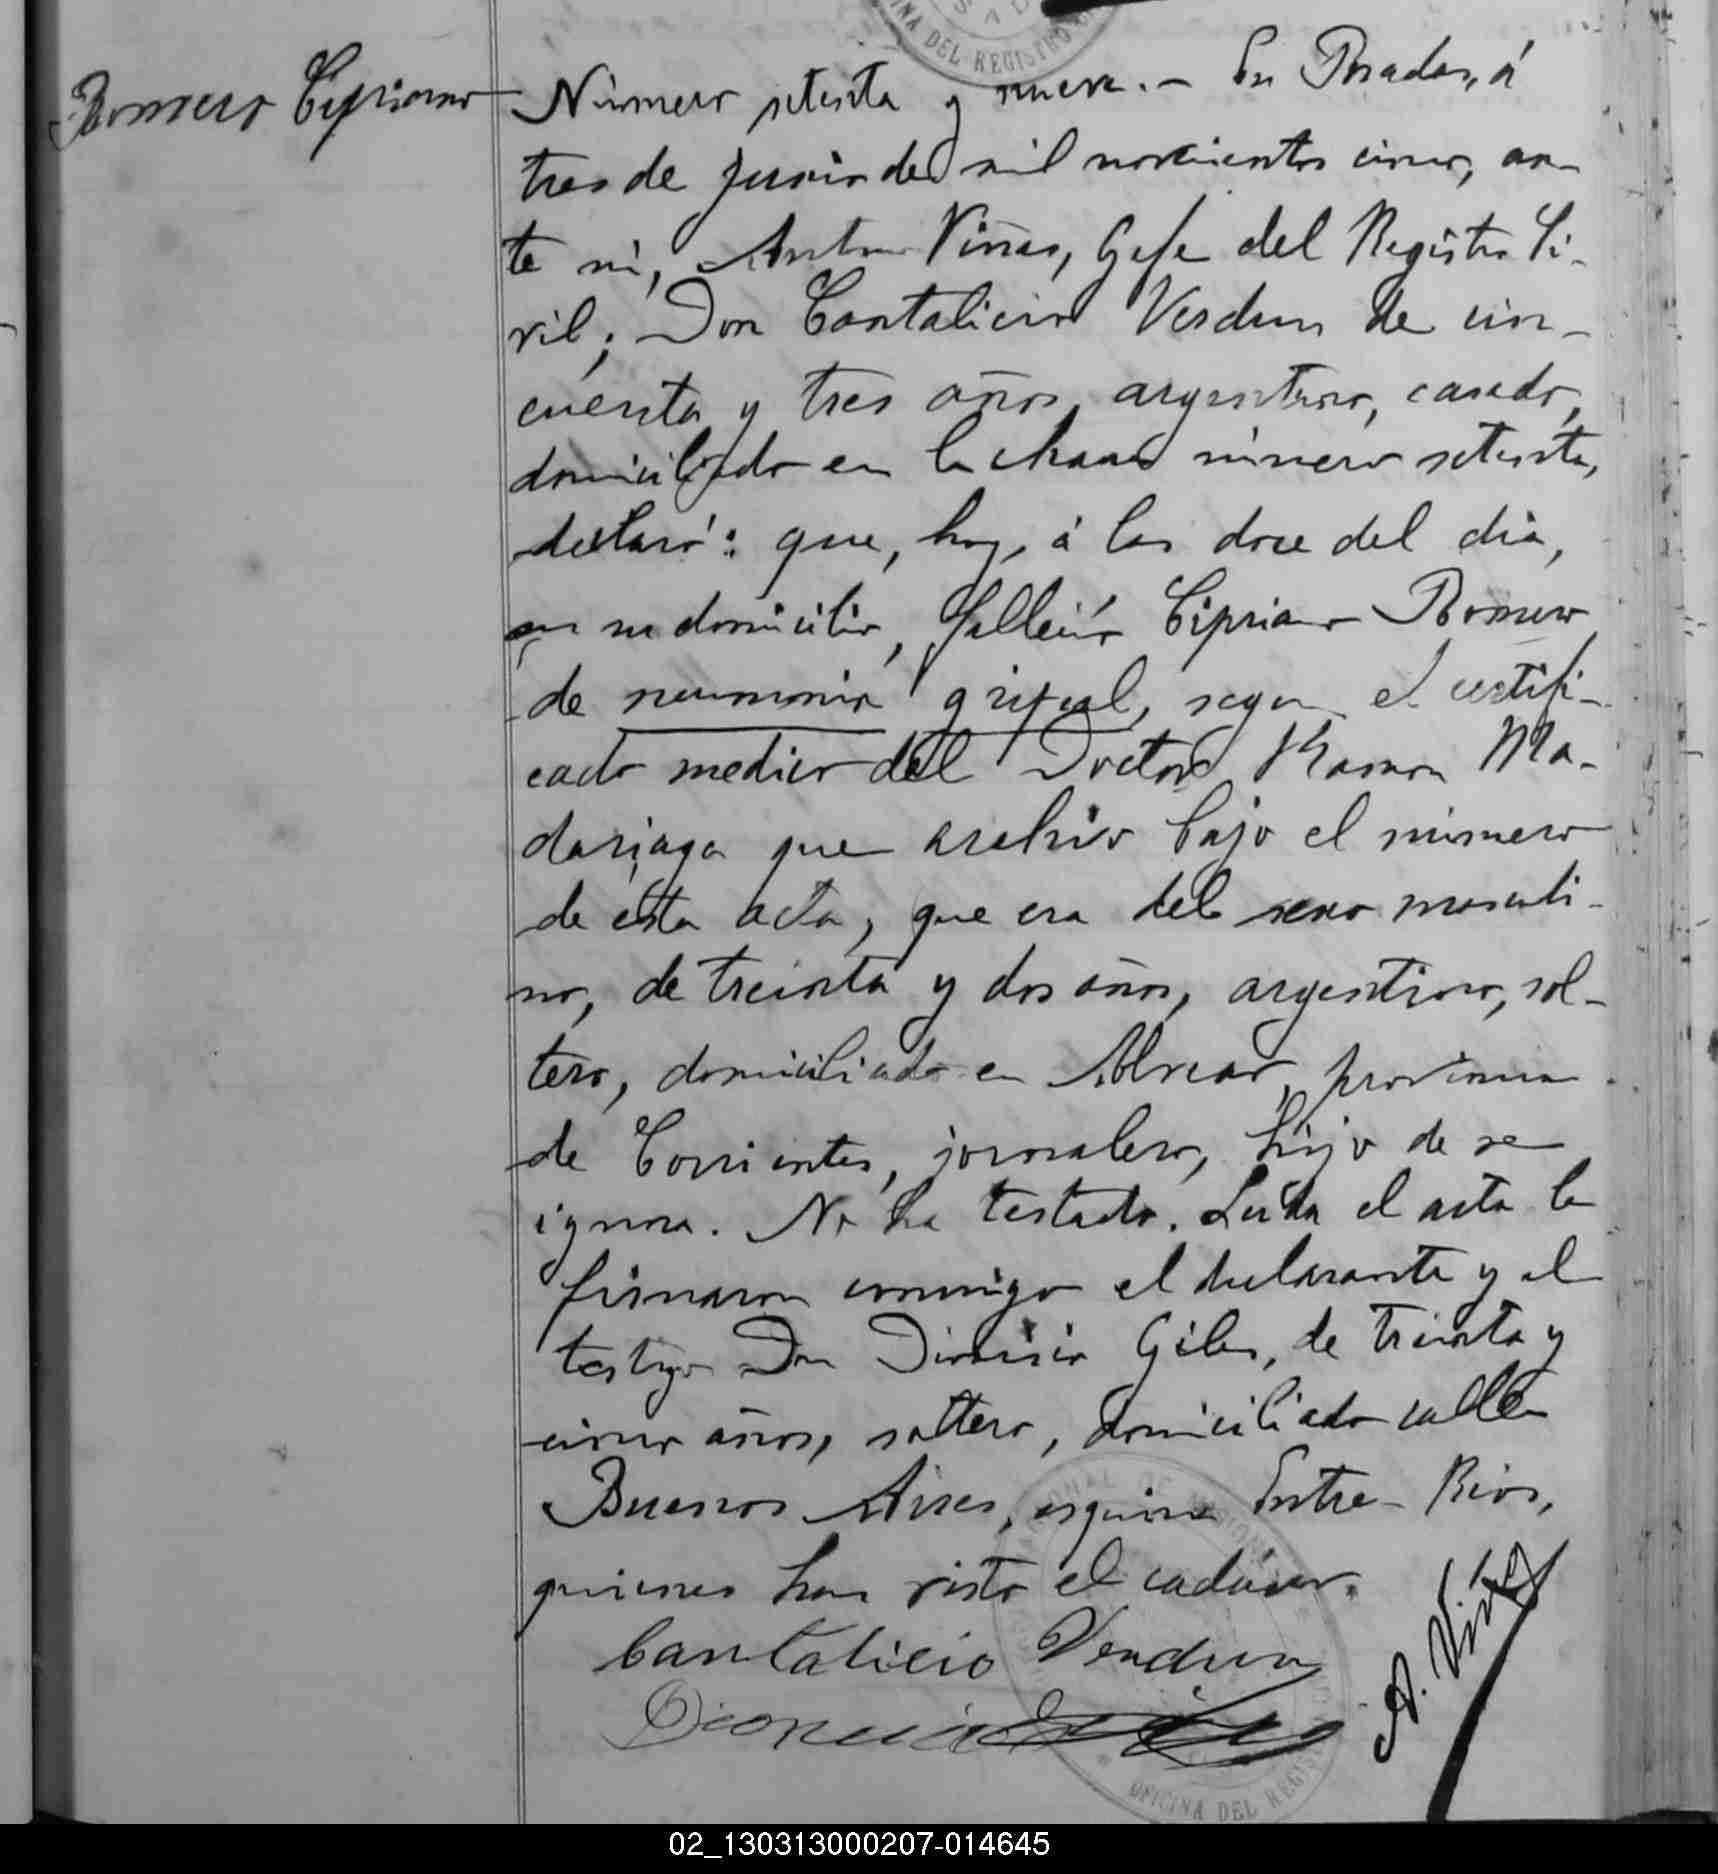 OFICINA DEL REGISTRO
Romero Cipriano
Número setenta y nueve. – En Posadas, á
tres de Junio de mil novecientos cinco, an-
te mí, Antonio Viñas, Gefe del Registro Ci-
vil; Don Cantalicio Verdun de cin-
cuenta y tres años, argentino, casado,
domiciliado en la chacra número setenta,
declaró: que, hoy, á las doce del dia,
en su domicilio, falleció Cipriano Romero
de neumonia gripal, segun el certifi-
cado medico del Doctor Ramon Ma-
dariaga que archivo bajo el número
de esta acta, que era del sexo masculi-
no, de treinta y dos años, argentino, sol-
tero, domiciliado en Alvear, provincia
de Corrientes, jornalero, hijo de se
ignora. No ha testado. Leida el acta la
firmaron conmigo el declarante y el
testigo Don Dionisio Giles, de treinta y
cinco años, soltero, domiciliado calle
Buenos Aires, esquina Entre-Rios,
quienes han visto el cadáver.
Cantalicio Verdun
A. Viñas
OFICINA DEL REGIS
02_130313000207-014645